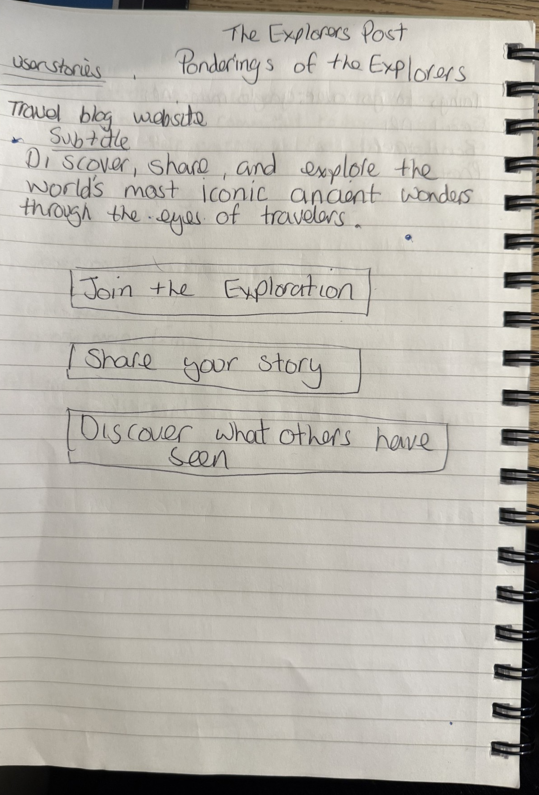 The Explorers Post
user stories . Ponderings of the Explorers
Travel blog website
Subtitle
Discover, share, and explore the
world's most iconic ancient wonders
through the eyes of travelers.
Join the Exploration
Share your story
Discover what others have
seen